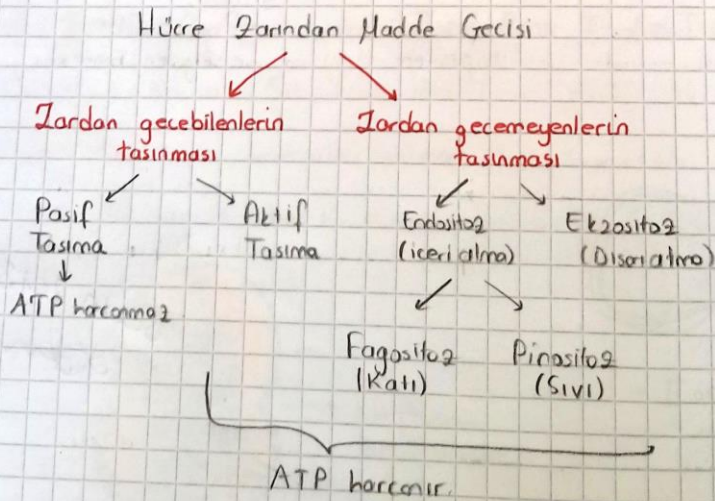 Hücre Zarından Madde Gecisi
Zardan gecebilenlerin
tasınması
Zardan gecemeyenlerin
tasınması
Pasif
Tasıma
ATP harcanmaz
Aktif
Tasıma
Endositoz
(iceri alma)
Ekzositoz
(Disarı atma)
Fagositoz
(Katı)
Pinositoz
(Sıvı)
ATP harcanır.